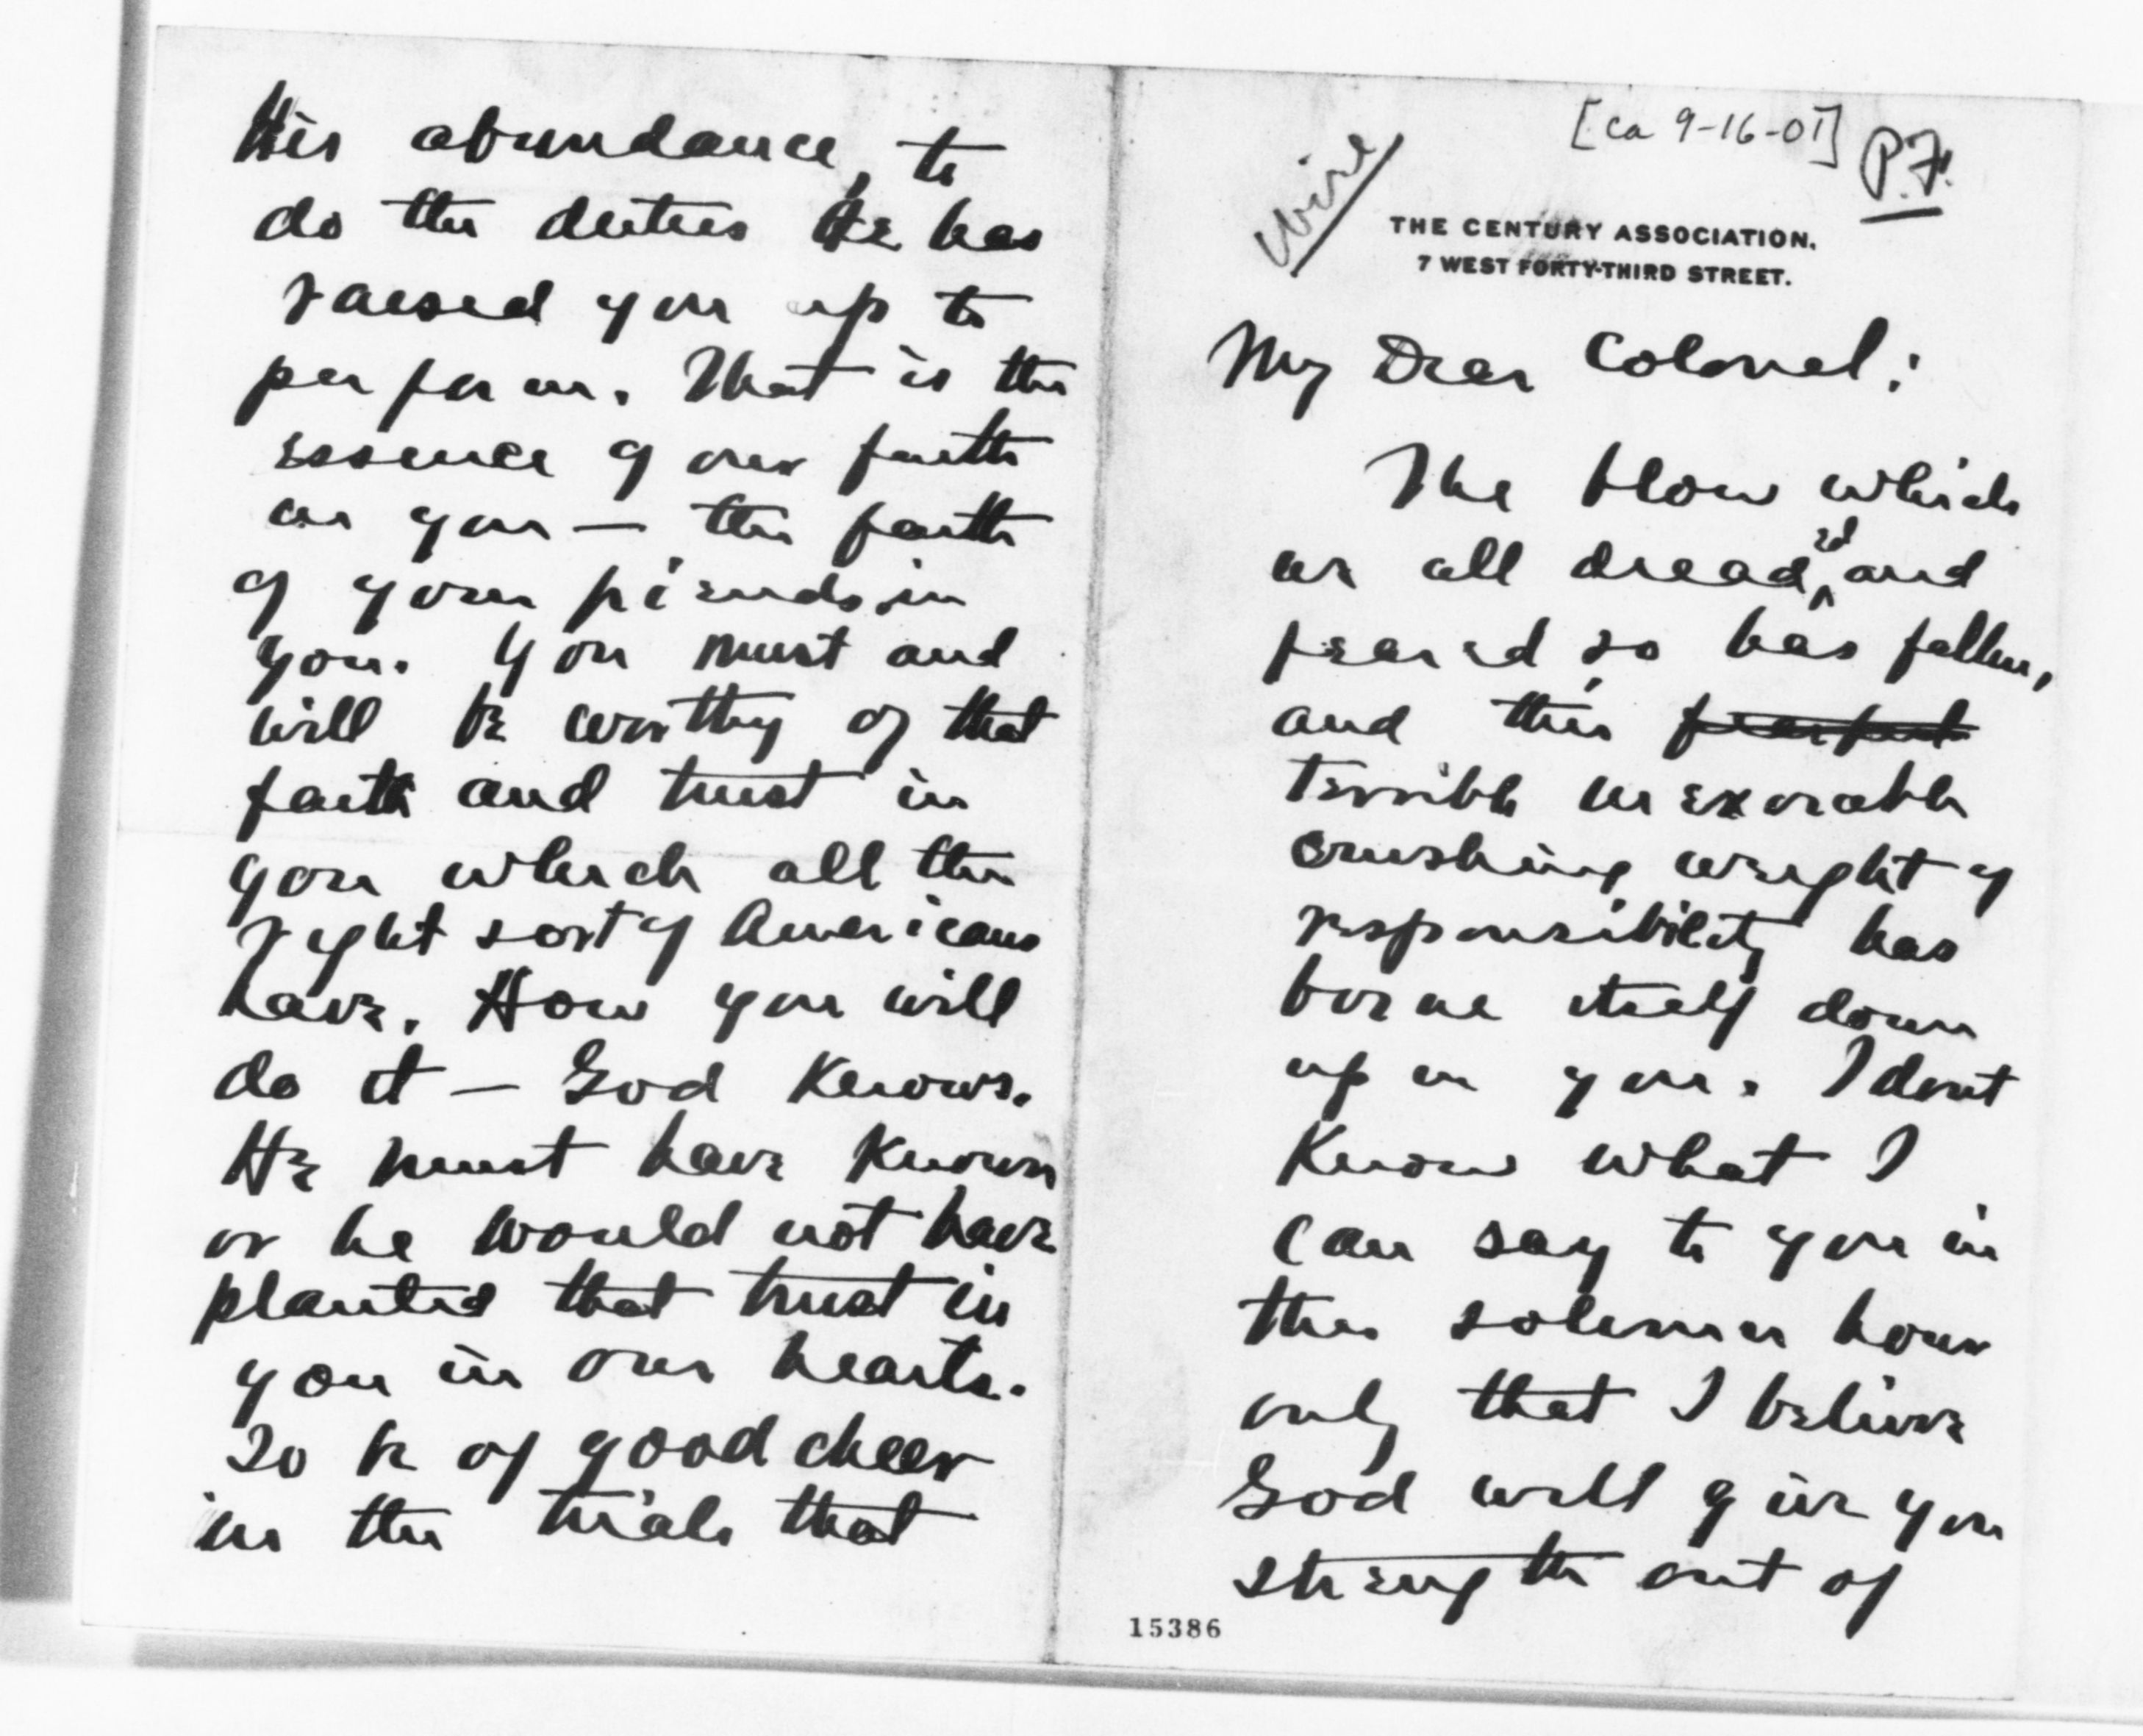 [ca 9-16-01]
P.F.
wire
THE CENTURY ASSOCIATION.
7 WEST FORTY-THIRD STREET.
My Dear Colonel:
The blow which
we all dreaded and
feared so has fallen,
and this fearful
terrible inexorable
crushing weight of
responsibility has
borne itself down
upon you. I dont
Know what I
can say to you in
this solemn hour
only that I believe
God will give you
strength out of
15386
His abundance, to
do the duties He has
raised you up to
perform. That is the
essence of our faith
in you — the faith
of your friends in
you. You must and
will be worthy of that
faith and trust in
you which all the
right sort of Americans
have. How you will
do it — God Knows.
He must have Known
or he would not have
planted that trust in
you in our hearts.
So be of good cheer
in the trials that